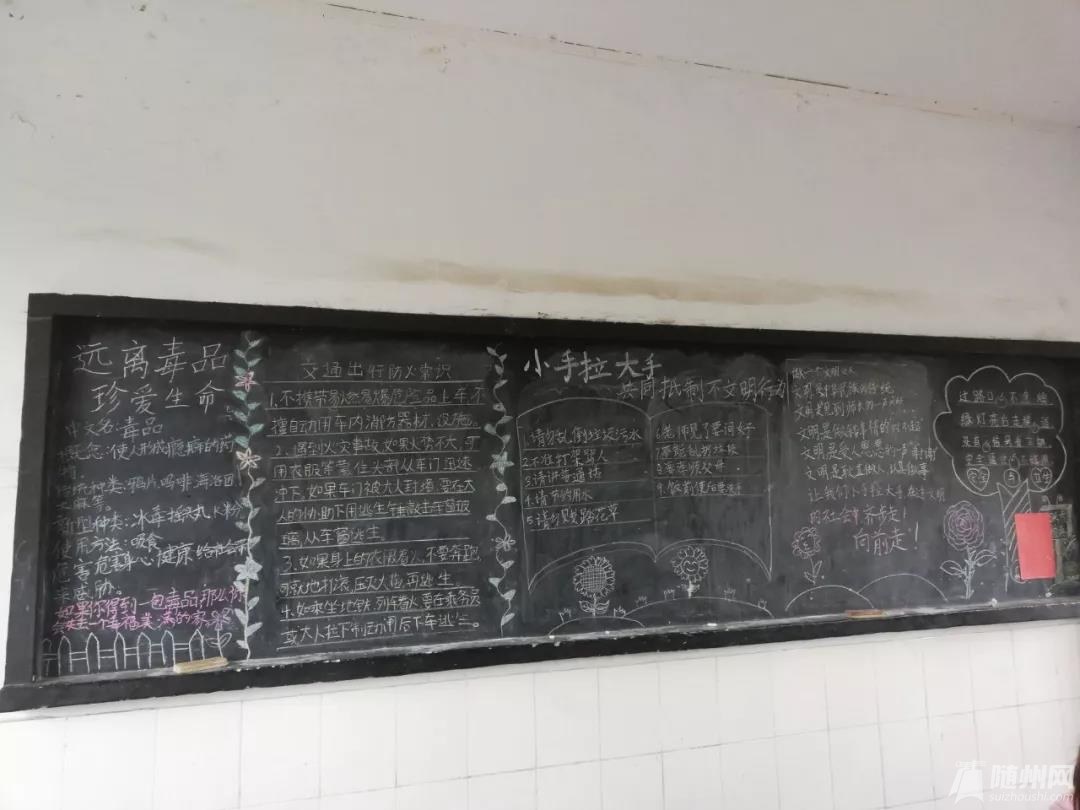 远离毒品
珍爱生命
中文名:毒品
概念:使人形成瘾癖的药
传统种类:鸦片 吗啡 海洛因
大麻等。
新型种类:冰毒 摇头丸 K
使用方法:吸食
危害:危害身心健康 给社会
来威胁。
如果你得到一包毒品那么你
会失去一个幸福美
交通出行防火常识
1.不携带易燃易爆危险品上车不
擅自动用车内消防器材、设施。
2.遇到火灾事故如果火势不大,可
用衣服等蒙住头部从车门迅速
冲下,如果车门被大火封堵要在大
人的协助下用逃生锤敲击车窗玻
璃从车窗逃生。
3.如果身上的衣服着火,不要奔跑
可就地打滚,压灭火苗再逃生
4.如乘坐地铁,列车着火要在乘务员
或大人拉下制动阀后下车逃生。
小手拉大手
共同抵制不文明行动
1.请勿乱倒垃圾污水
2.不准打架骂人
3.请讲普通话
4.请节约用水
5.请勿践踏花草
6.老师见了要问好
8.要孝敬父母
9.饭前便后要洗手
文明是做错事情的
文明是受人恩惠的一声谢谢
让我们小手拉大手
的社会 齐步走!
向前走!
过路口
绿灯亮右走
安全
与
随州网
suizhoushi.com